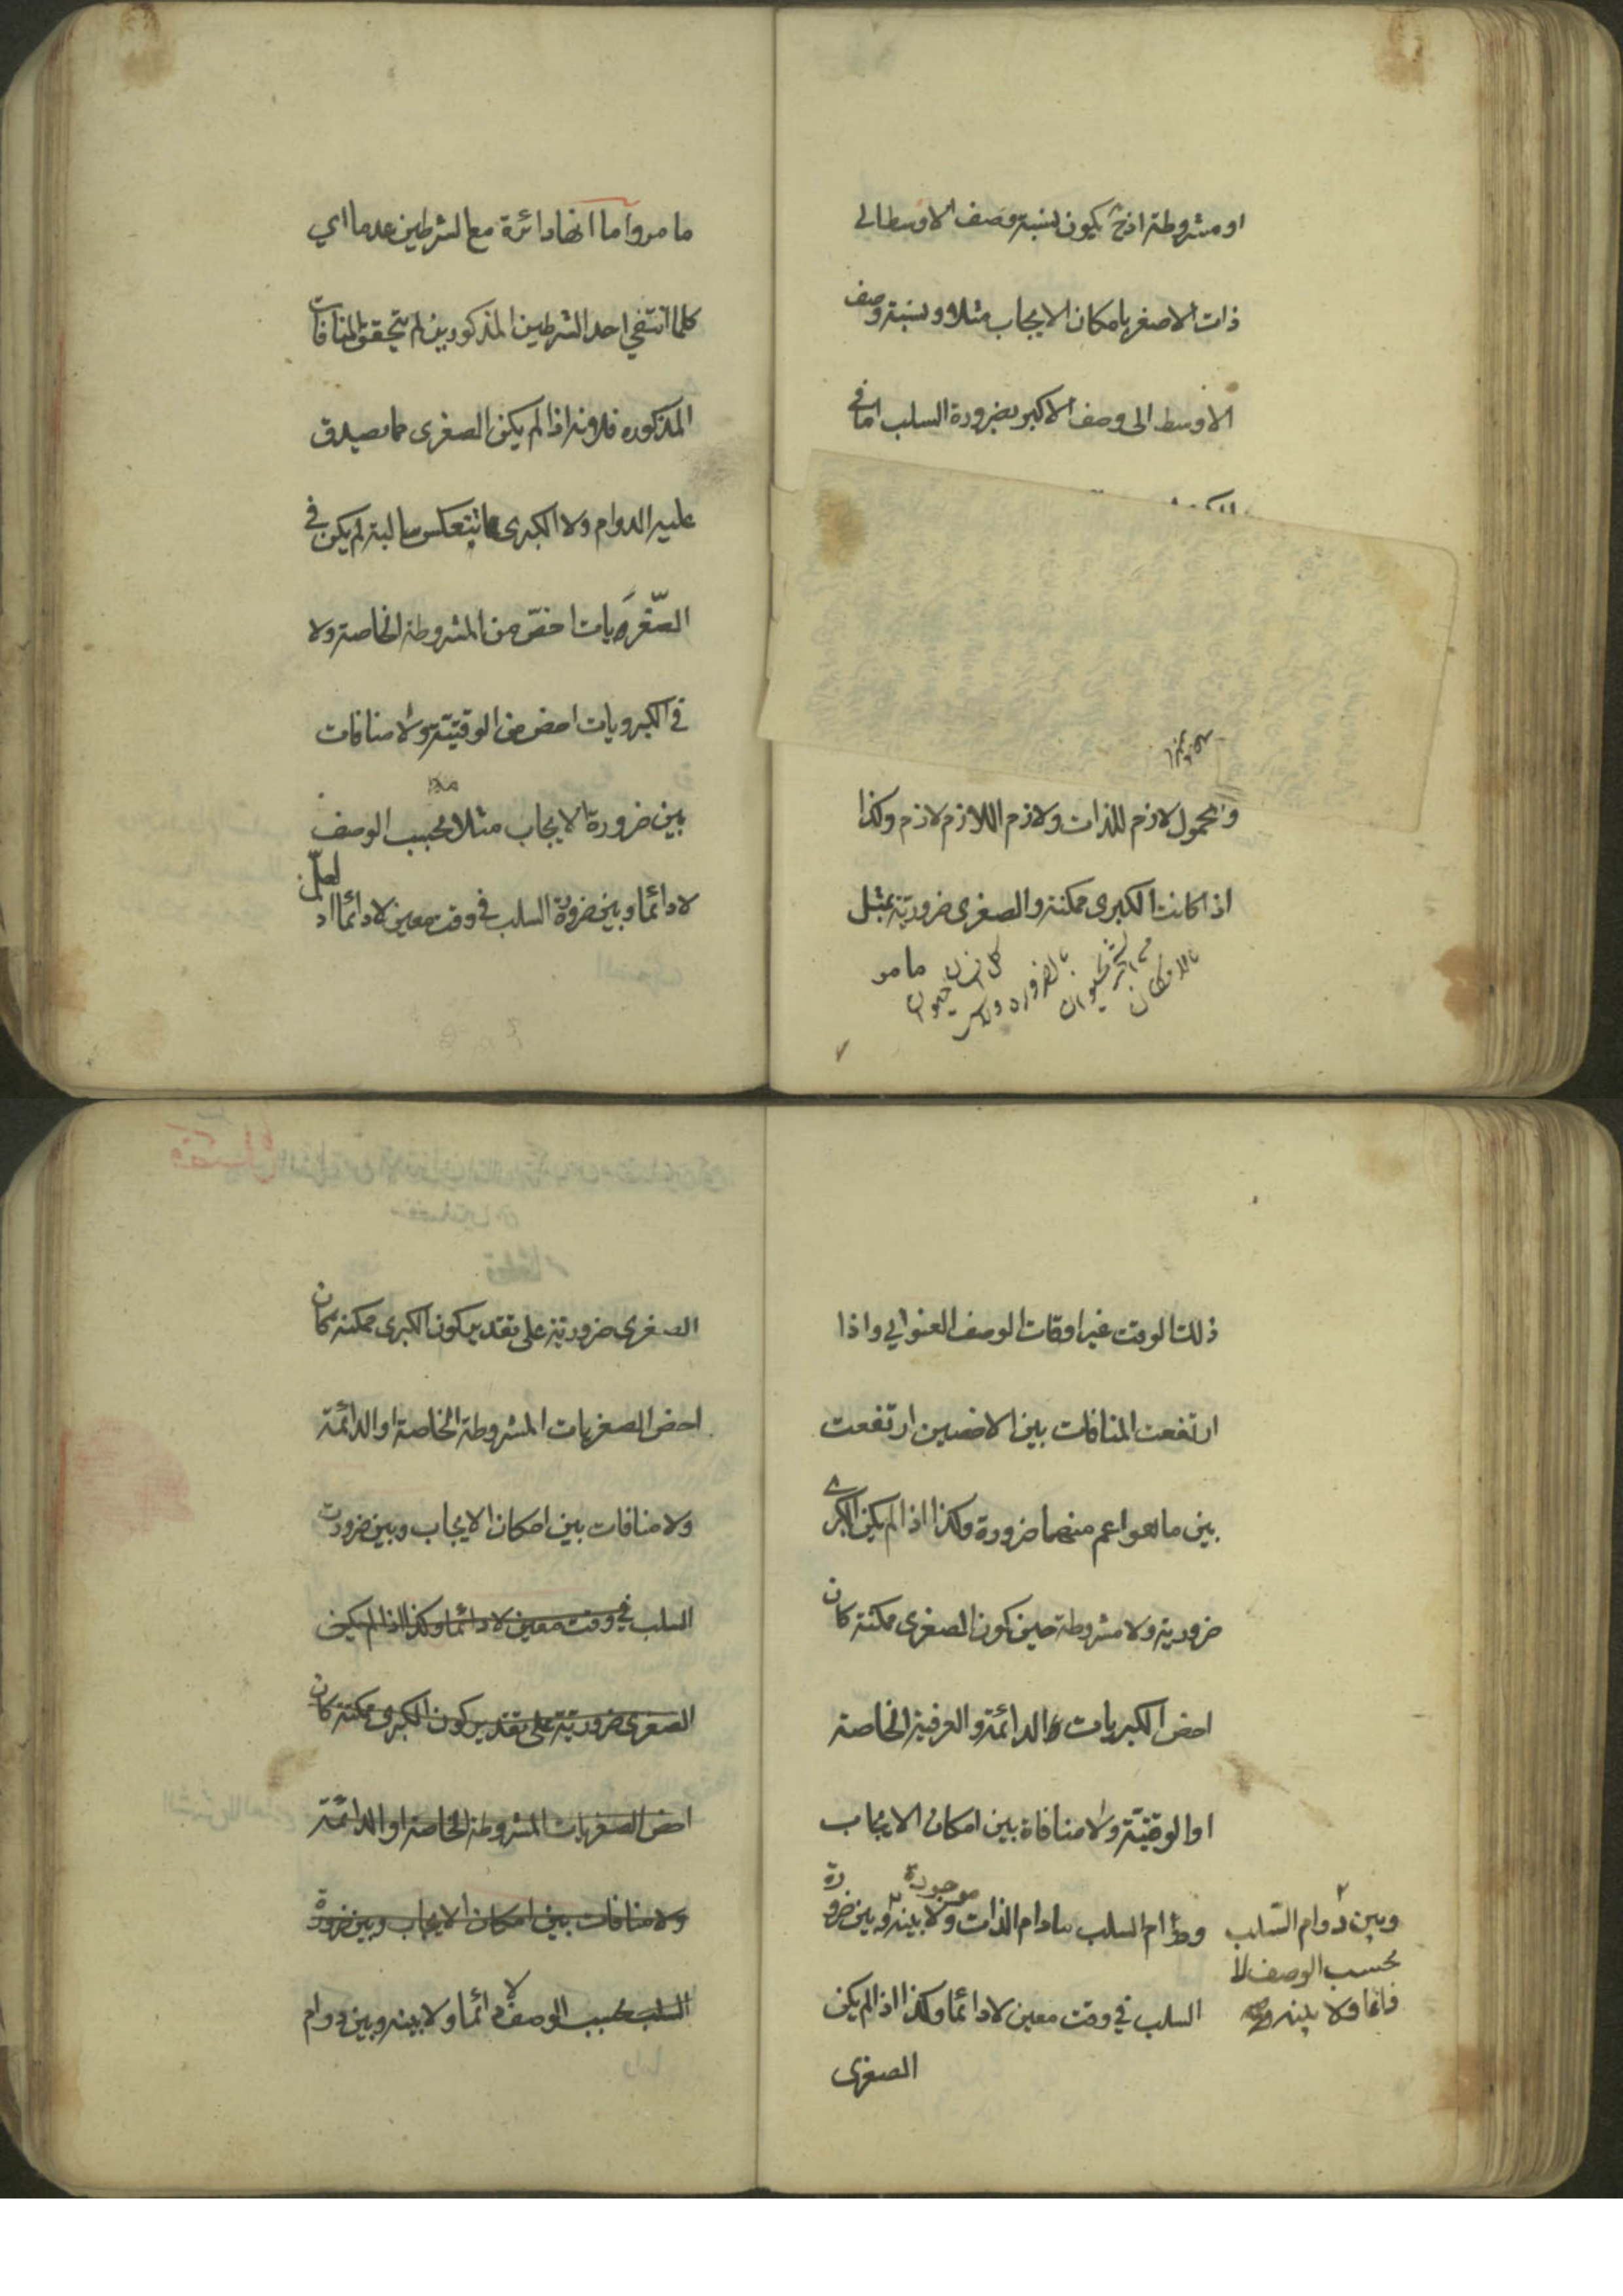 او مشروطة اذح يكون نسبة وصف الاوسط الى
ذات الاصغر بامكان الايجاب مثلا ونسبة وصف
الاوسط الى وصف الاكبر بضرورة السلب اما في
والمحمول لازم للذات ولازم اللازم لازم وكذا
اذا كانت الكبرى ممكنة والصغرى ضرورية بمثل
ما مر
ما مر واما انها دائرة مع الشرطين عدما اي
كلما انتفى احد الشرطين المذكورين لم يتحقق المنافات
المذكوره فلانه اذا لم يكن الصغرى مما يصدق
عليه الدوام ولا الكبرى مما تنعكس سالبة لم يكن في
الصّغريات اخصّ من المشروطة الخاصة ولا
في الكبرويات اخص من الوقتية ولا منافات
بين ضرورة الايجاب مثلا بحسب الوصف
لا دائما وبين ضرورة السلب في وقت معين لا دائما اذ لعلّ
ذلك الوقت غير اوقات الوصف العنواني واذا
ارتفعت المنافات بين الاخصين ارتفعت
بين ما هو اعم منهما ضرورة وكذا اذا لم يكن الكبرى
ضرورية ولا مشروطة حين كون الصغرى ممكنة كان
اخص الكبريات الدائمة والعرفية الخاصة
او الوقتية ولا منافاة بين امكان الايجاب
ودوام السلب مادام الذات موجودة ولا بينه وبين ضرورة
وبين دوام السّلب
بحسب الوصف لا
السلب في وقت معين لا دائما وكذا اذا لم يكن
الصغرى
الصغرى ضرورية على تقدير كون الكبرى ممكنة كان
اخص الصغريات المشروطة الخاصة او الدائمة
ولا منافات بين امكان الايجاب وبين ضرورت
السلب في وقت معين لا دائما وكذا اذا لم يكن
الصغرى ضرورية على تقدير كون الكبرى ممكنة كان
اخص الصغريات المشروطة الخاصة او الدائمة
ولا منافات بين امكان الايجاب وبين ضرورة
السلب بحسب الوصف لا دائما ولا بينه وبين دوام